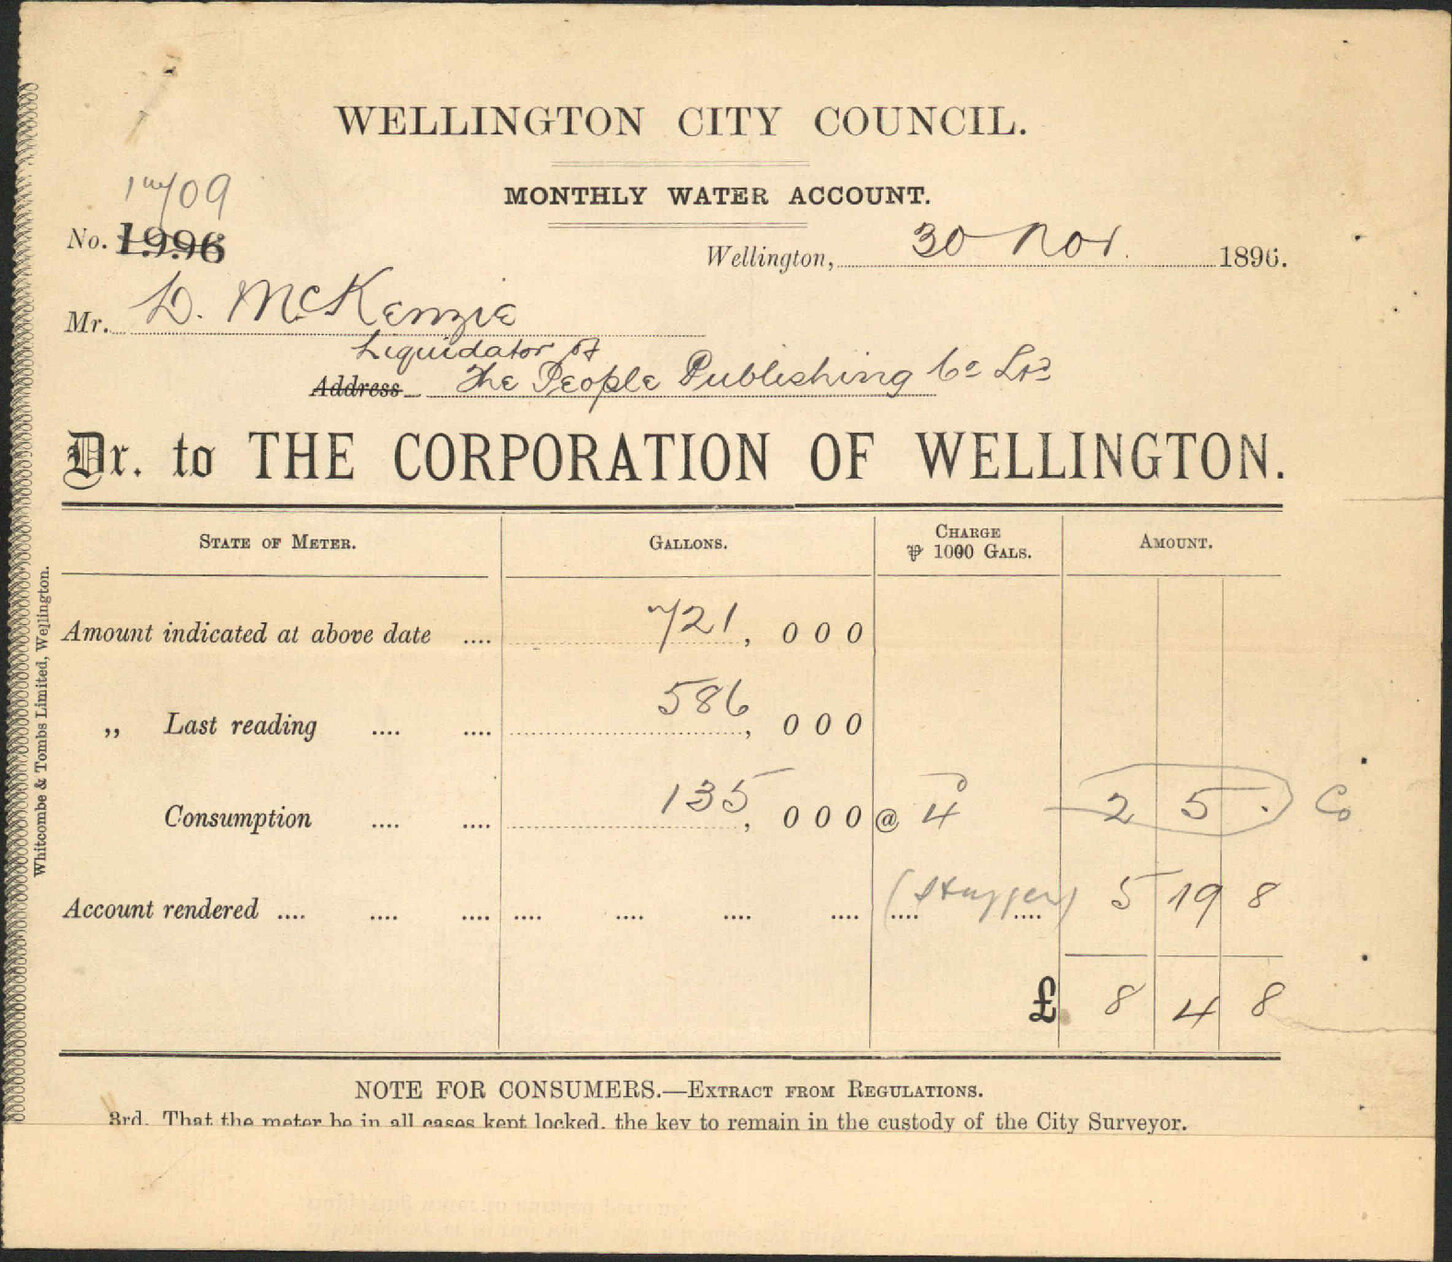 WELLINGTON CITY COUNCIL.
MONTHLY WATER ACCOUNT.
No. 1996
Wellington, 30 Nov. 1896.
Mr. D. McKenzie
Liquidator of
Address The People Publishing Co Ltd
Dr. to THE CORPORATION OF WELLINGTON.
STATE OF METER. GALLONS. CHARGE ⅌ 1000 GALS. AMOUNT.
Amount indicated at above date .... 721, 000
„ Last reading .... .... 586, 000
Consumption .... .... 135, 000 @ 4 2 5 . Co
Account rendered .... .... .... .... .... .... .... .... .... 5 19 8
£ 8 4 8
NOTE FOR CONSUMERS.—EXTRACT FROM REGULATIONS.
3rd. That the meter be in all cases kept locked, the key to remain in the custody of the City Surveyor.
Whitcombe & Tombs Limited, Wellington.